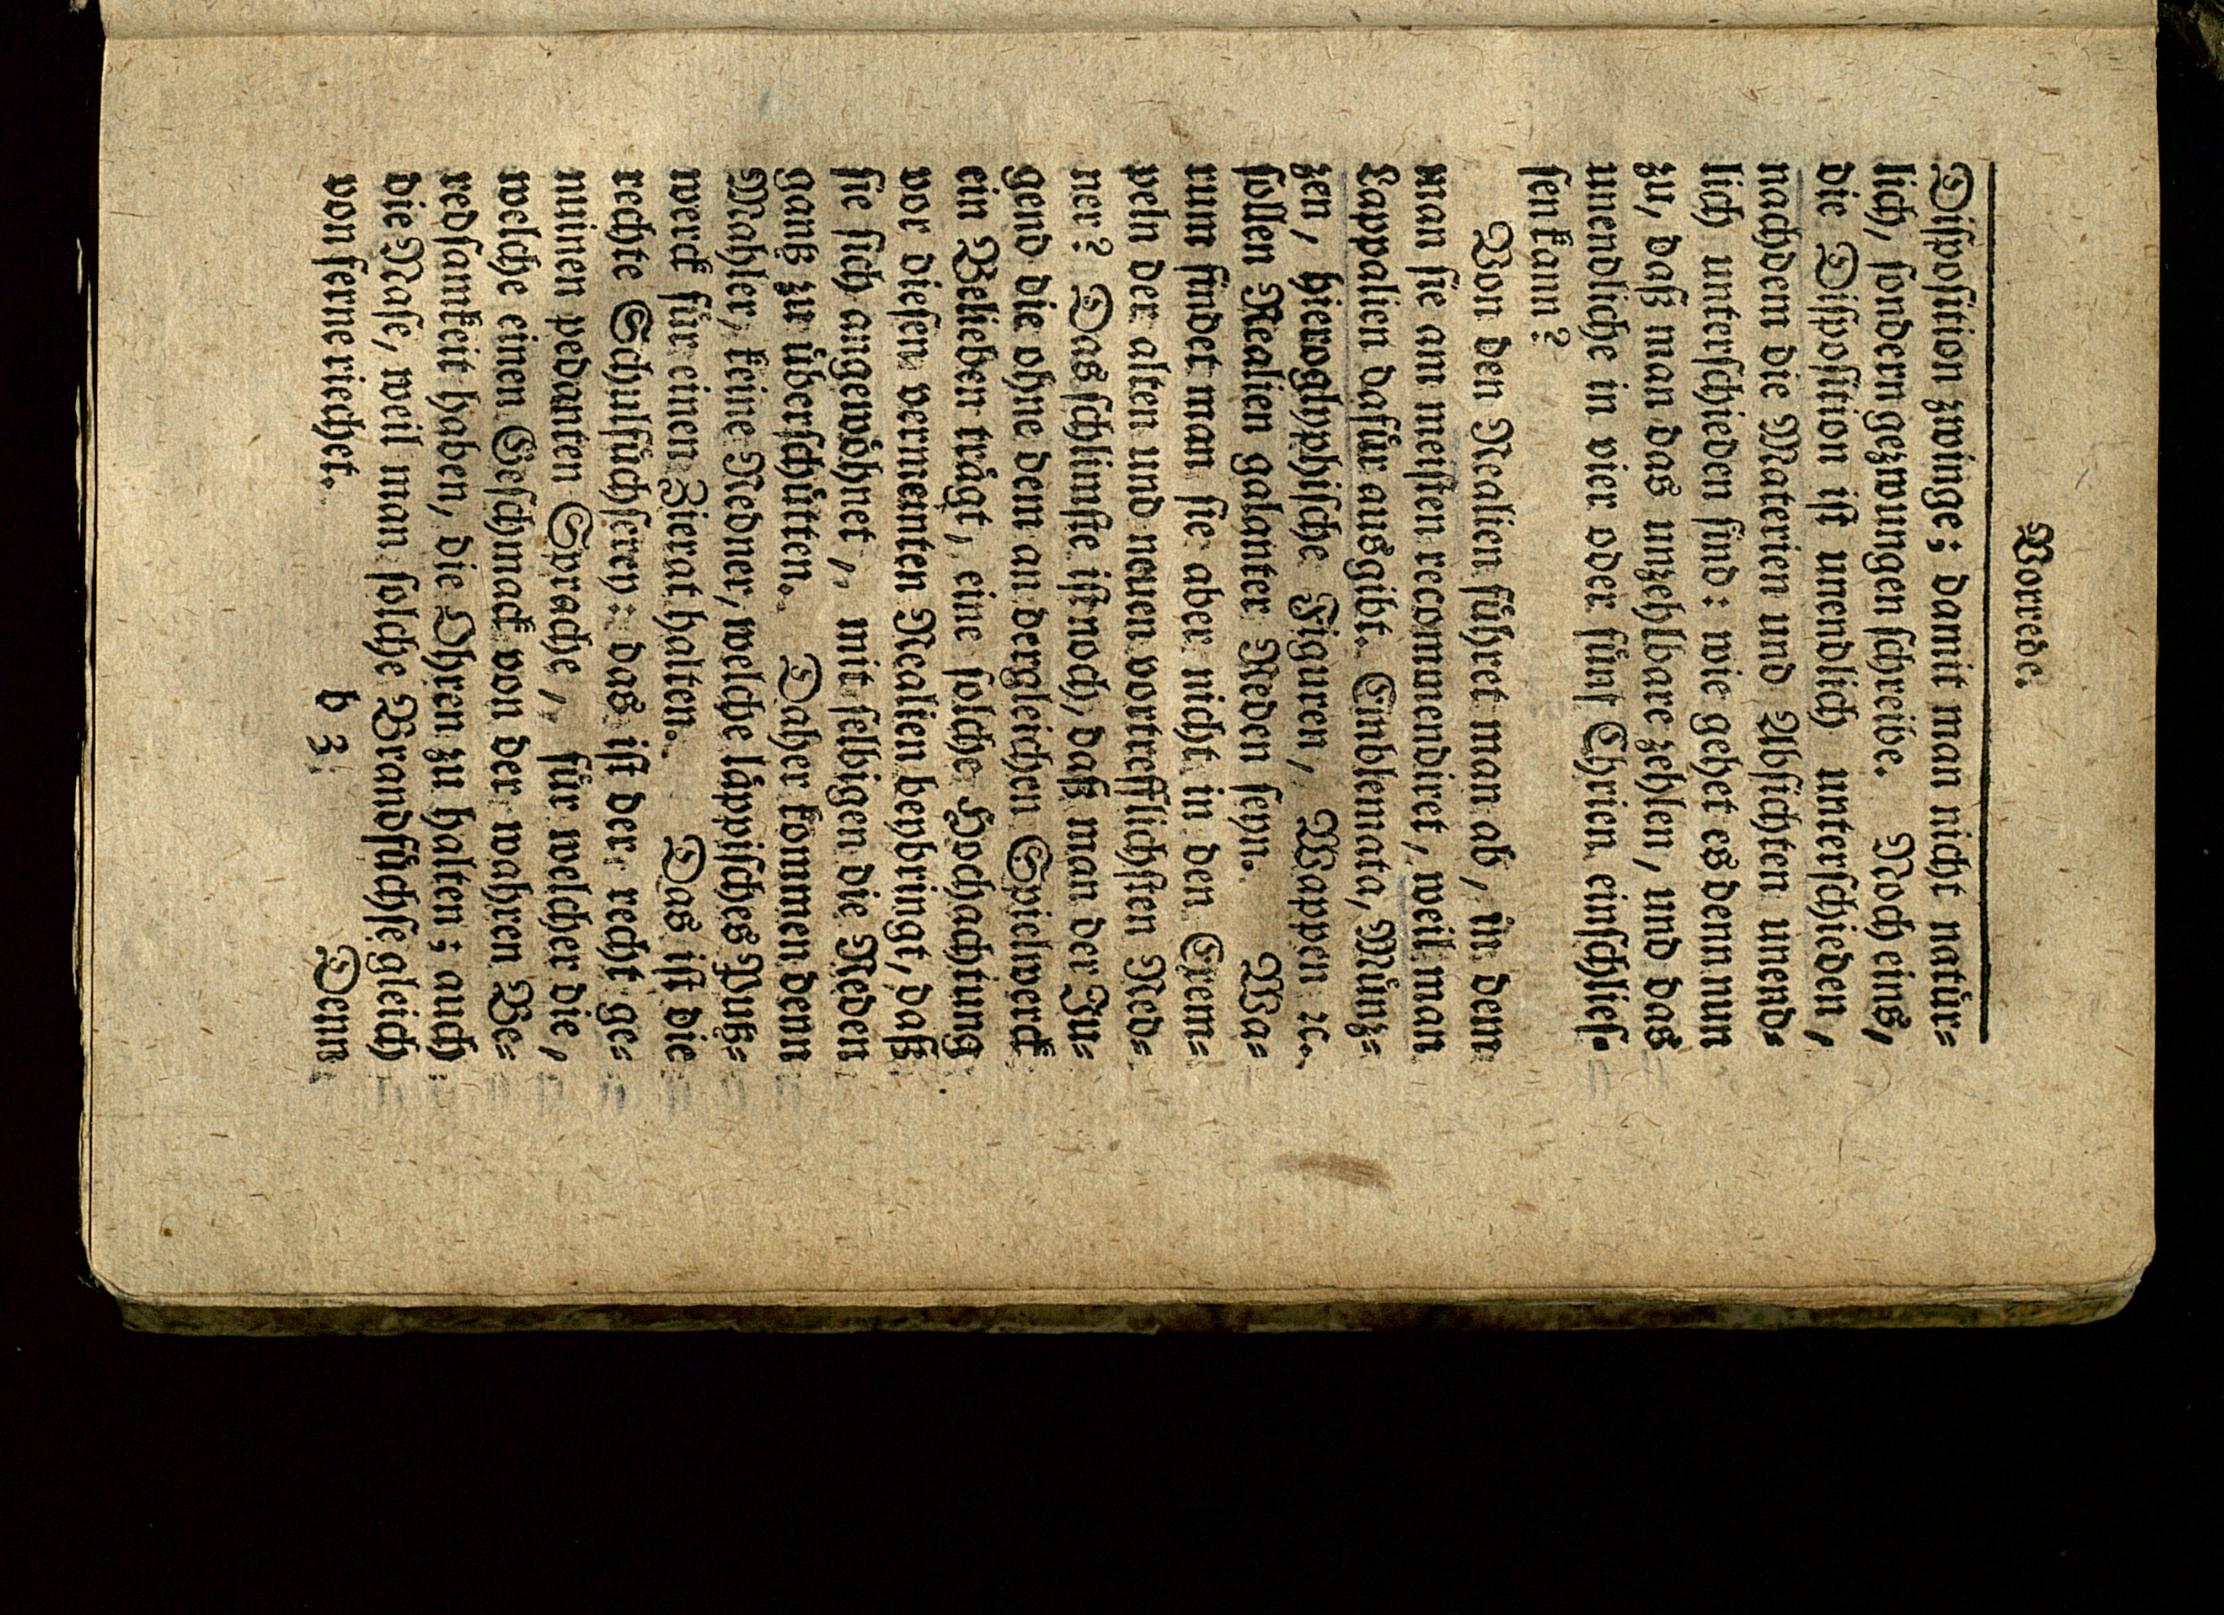 Vorrede.
Diſpoſition zwinge; damit man nicht natuͤr⸗
lich, ſondern gezwungen ſchreibe. Noch eins,
die Diſpoſition iſt unendlich unterſchieden,
nachdem die Materien und Abſichten unend⸗
lich unterſchieden ſind: wie gehet es denn nun
zu, daß man das unzehlbare zehlen, und das
unendliche in vier oder fuͤnf Chrien einſchlieſ⸗
ſen kann?
Von den Realien fuͤhret man ab, in dem
man ſie am meiſten recommendiret, weil man
Lappalien dafuͤr ausgibt. Emblemata, Muͤn⸗
zen, hieroglyphiſche Figuren, Wappen ꝛc.
ſollen Realien galanter Reden ſeyn. Wa⸗
rum findet man ſie aber nicht in den Exem⸗
peln der alten und neuen vortrefflichſten Red⸗
ner? Das ſchlimſte iſt noch, daß man der Ju⸗
gend die ohne dem an dergleichen Spielwerck
ein Belieben traͤgt, eine ſolche Hochachtung
vor dieſen vermeanten Realien beybringt, daß
ſie ſich angewoͤhnet, mit ſelbigen die Reden
gantz zu uͤberſchuͤtten. Daher kommen denn
Mahler, keine Redner, welche laͤppiſches Putz⸗
werck fuͤr einen Zierat halten. Das iſt die
rechte Schulfuͤchſerey: das iſt der recht ge⸗
muͤnzen pedanten Sprache, fuͤr welcher die,
welche einen Geſchmack von der wahren Be⸗
redſamkeit haben, die Ohren zu halten; auch
die Naſe, weil man ſolche Brandfuͤchſe gleich
von ferne riechet.
b 3 Denn